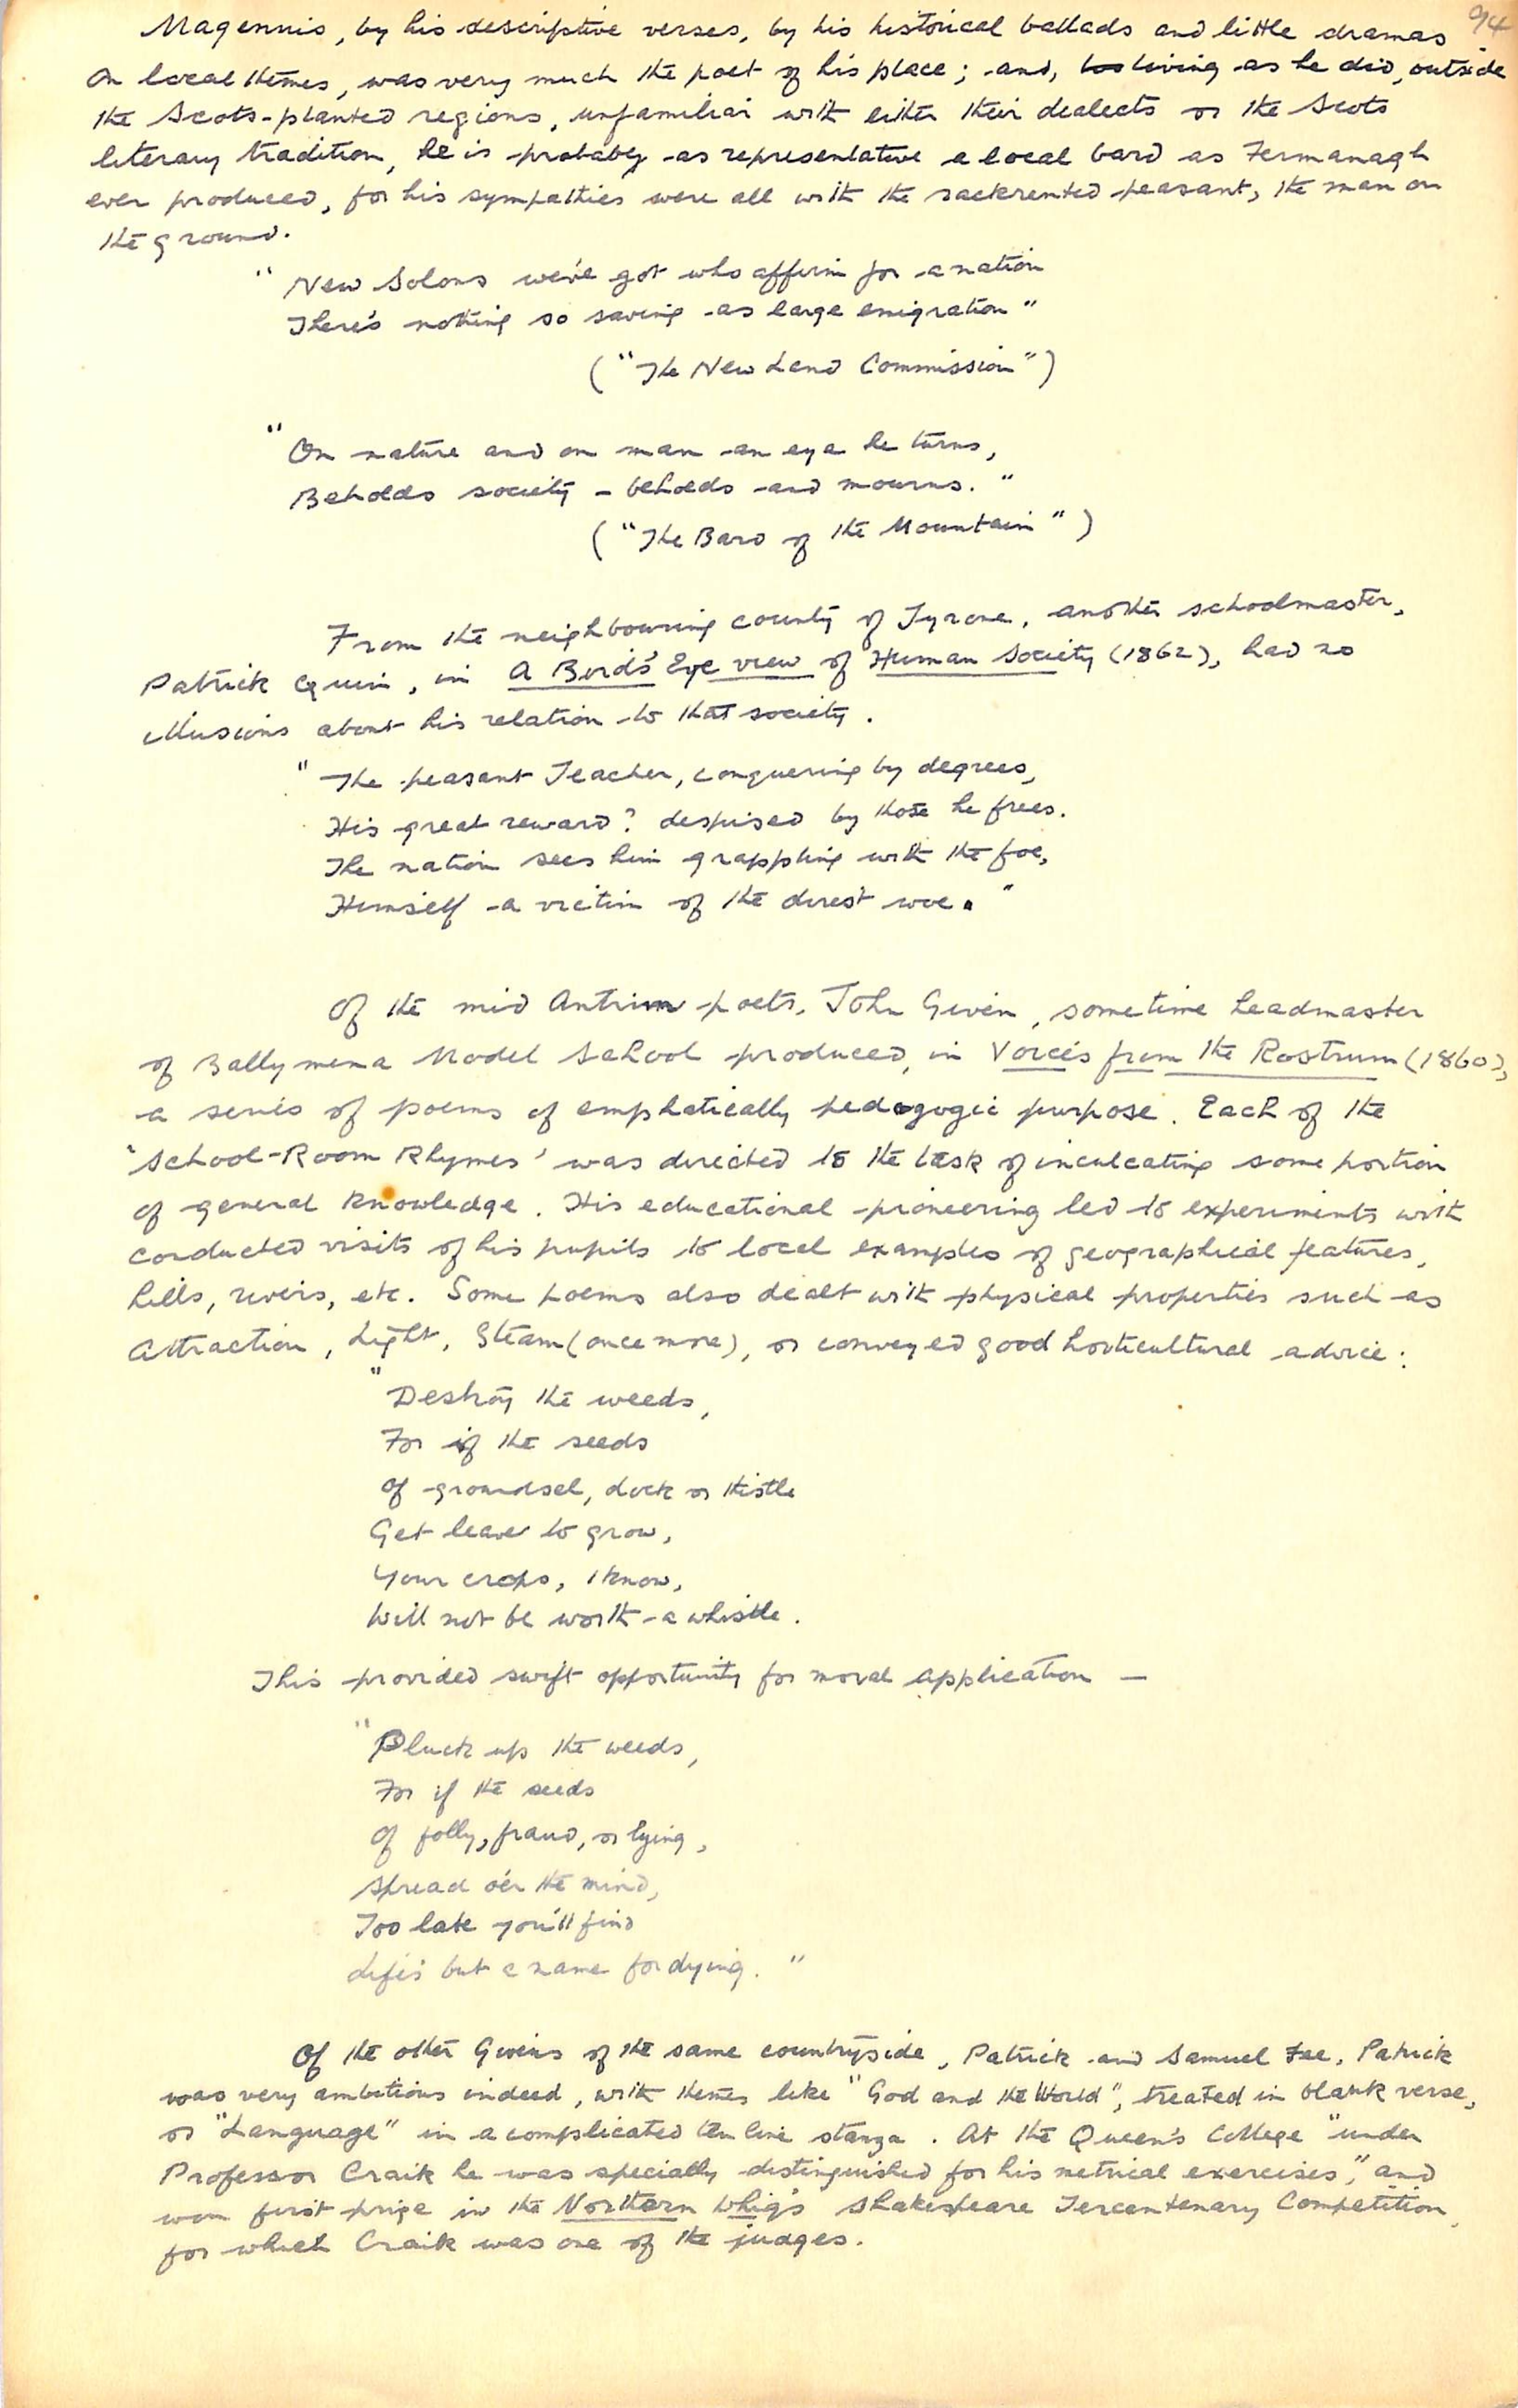 94
Magennis, by his descriptive verses, by his historical ballads and little dramas
on local themes, was very much the poet of his place; and, living as he did, outside
the Scots-planted regions, unfamiliar with either their dialects or the Scots
literary tradition, he is probably as representative a local bard as Fermanagh
ever produced, for his sympathies were all with the rackrented peasant, the man on
the ground.
"New Solons we've got who affirm for a nation
There's nothing so saving as large emigration"
("The New Land Commission")
"On nature and on man an eye he turns,
Beholds society – beholds and mourns."
("The Bard of the Mountain")
From the neighbouring county of Tyrone, another schoolmaster,
Patrick Quin, in A Bird's Eye view of Human Society (1862), had no
illusions about his relation to that society.
"The peasant Teacher, conquering by degrees,
His great reward? despised by those he frees.
The nation sees him grappling with the foe,
Himself a victim of the direst woe."
Of the mid Antrim poets, John Given, sometime headmaster
of Ballymena Model School produced, in Voices from the Rostrum (1860),
a series of poems of emphatically pedagogic purpose. Each of the
'School-Room Rhymes' was directed to the task of inculcating some portion
of general knowledge. His educational pioneering led to experiments with
conducted visits of his pupils to local examples of geographical features,
hills, rivers, etc. Some poems also dealt with physical properties such as
Attraction, Light, Steam (once more), or conveyed good horticultural advice:
"Destroy the weeds,
For if the seeds
Of groundsel, dock or thistle
Get leave to grow,
Your crops, I know,
Will not be worth a whistle.
This provided swift opportunity for moral application —
"Pluck up the weeds,
For if the seeds
Of folly, fraud, or lying,
Spread o'er the mind,
Too late you'll find
Life's but a name for dying."
Of the other Givens of the same countryside, Patrick and Samuel Fee, Patrick
was very ambitious indeed, with themes like "God and the World", treated in blank verse,
or "Language" in a complicated ten line stanza. At the Queen's College "under
Professor Craik he was specially distinguished for his metrical exercises," and
won first prize in the Northern Whig's Shakespeare Tercentenary Competition,
for which Craik was one of the judges.